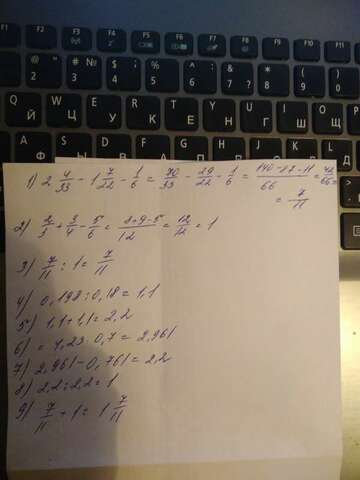 F1 F2 F3 F4 F5 F6 F7 F8 F9 F10 F11
@ 2 # № 3 $ ; 4 % 5 ^ : 6 & ? 7 * 8 ( 9 ) 0
Q Й W Ц E У R К T Е Y Н U Г I Ш O Щ P З
1) 2 4/33 - 1 7/22 - 1/6 = 70/33 - 29/22 - 1/6 = 140-87-11/66 = 42/66 =
= 7/11
2) 2/3 + 3/4 - 5/6 = 8+9-5/12 = 12/12 = 1
3) 7/11 : 1 = 7/11
4) 0,198 : 0,18 = 1,1
5) 1,1 + 1,1 = 2,2
6) = 4,23 · 0,7 = 2,961
7) 2,961 - 0,761 = 2,2
8) 2,2 : 2,2 = 1
9) 7/11 + 1 = 1 7/11